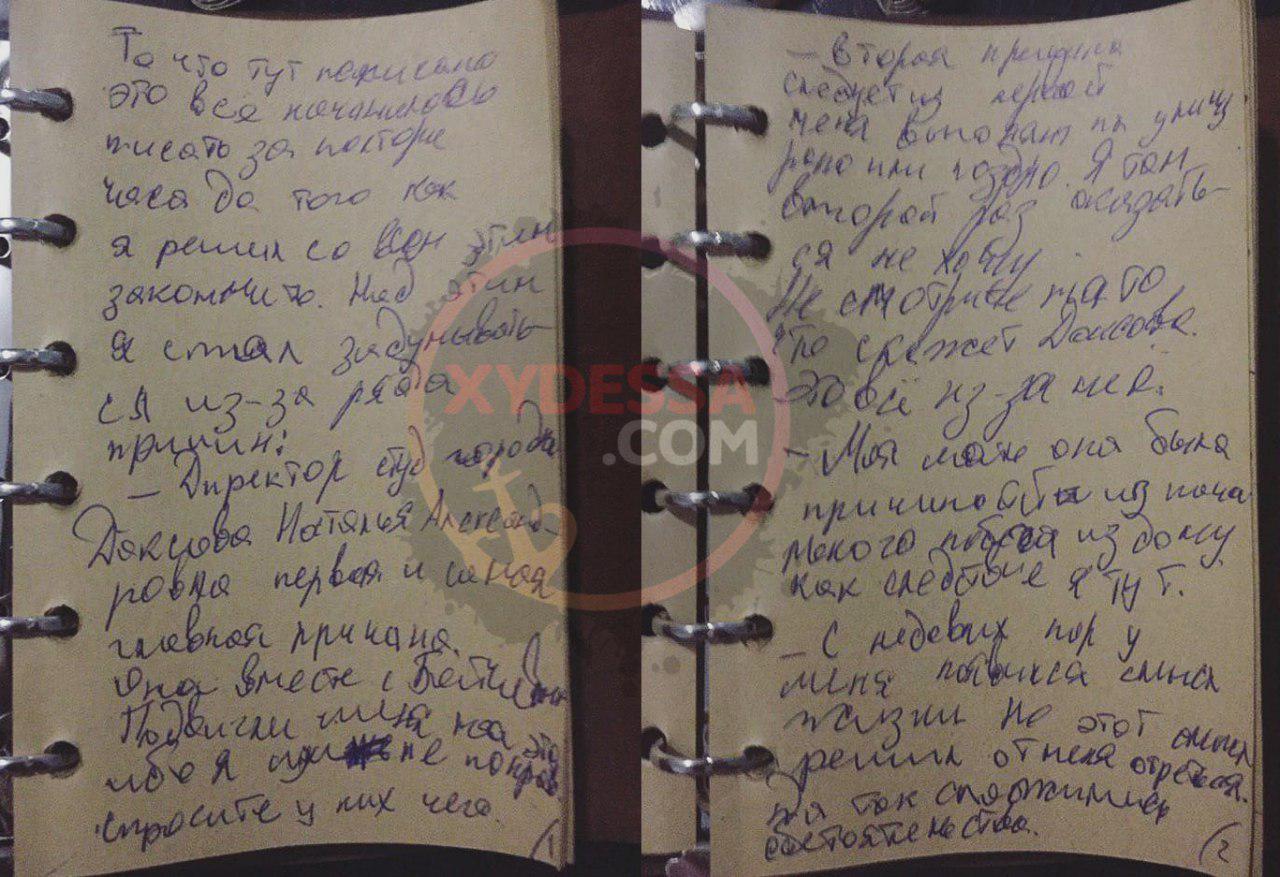 То что тут написано
это всё начиналось
писать за полтора
часа до того как
я решил со всем этим
закончить. Над этим
я стал задумывать-
ся из-за ряда
причин:
– Директор студ города
Наталья Александ-
ровна первая и самая
главная причина.
Она вместе с
Подвигли меня на это
ибо я им не понрав
спросите у них чего.
1
– Вторая причина
следует из первой
меня выгонят на улицу
рано или поздно. Я там
второй раз оказать-
ся не хочу.
Не смотрите на то
что скажет
это всё из-за неё.
– Моя мать она была
причиной из нача
моего побега из дому
как следствие я тут.
– С недавних пор у
меня появился смысл
жизни но этот смысл
решил от меня отречься.
так сложились
обстоятельства.
2
XYDESSA
.COM